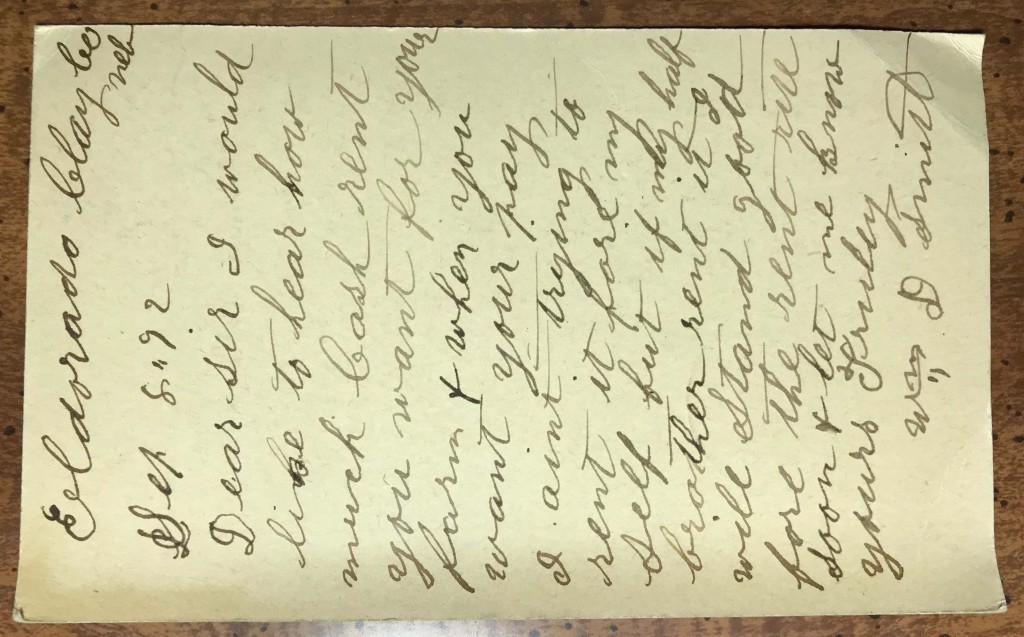 Eldorado Clay Co
Neb
Sep 8" 92
Dear sir I would
like to hear how
much Cash rent
you want for your
farm & when you
want your pay
I aint trying to
rent it fore my
self but if my half
brother rent it I
will stand good
fore the rent rite
soon & let me know
yours Truley
Wm D Smith